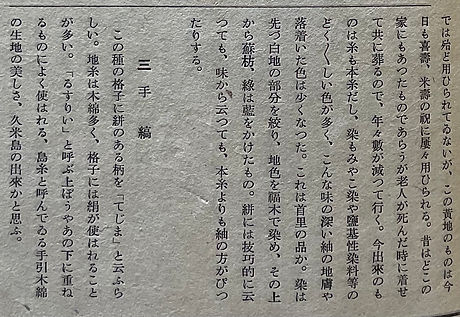 では殆と用ひられてゐないが、この黄地のものは今
日も喜壽、米壽の祝に屢々用ひられる。昔はどこの
家にもあつたものであらうが老人が死んだ時に着せ
て共に葬るので、年々數が減つて行く。今出來のも
のは糸も本糸だし、染もみやこ染や鹽基性染料等の
どく〳〵しい色が多く、こんな味の深い紬の地膚や
落着いた色は少くなつた。これは首里の品か。染は
先づ白地の部分を絞り、地色を福木で染め、その上
から蘇枋、綠は藍をかけたもの。絣には技巧的に云
つても、味から云つても、本糸よりも紬の方がぴつ
たりする。
三 手縞
この種の格子に絣のある柄を「てじま」と云ふら
しい。地糸は木綿多く、格子には絹が使はれること
が多い。「るすりい」と呼ぶ上ぼうやあの下に重ね
るものによく使はれる、島糸と呼んでゐる手引木綿
の生地の美しさ、久米島の出來かと思ふ。